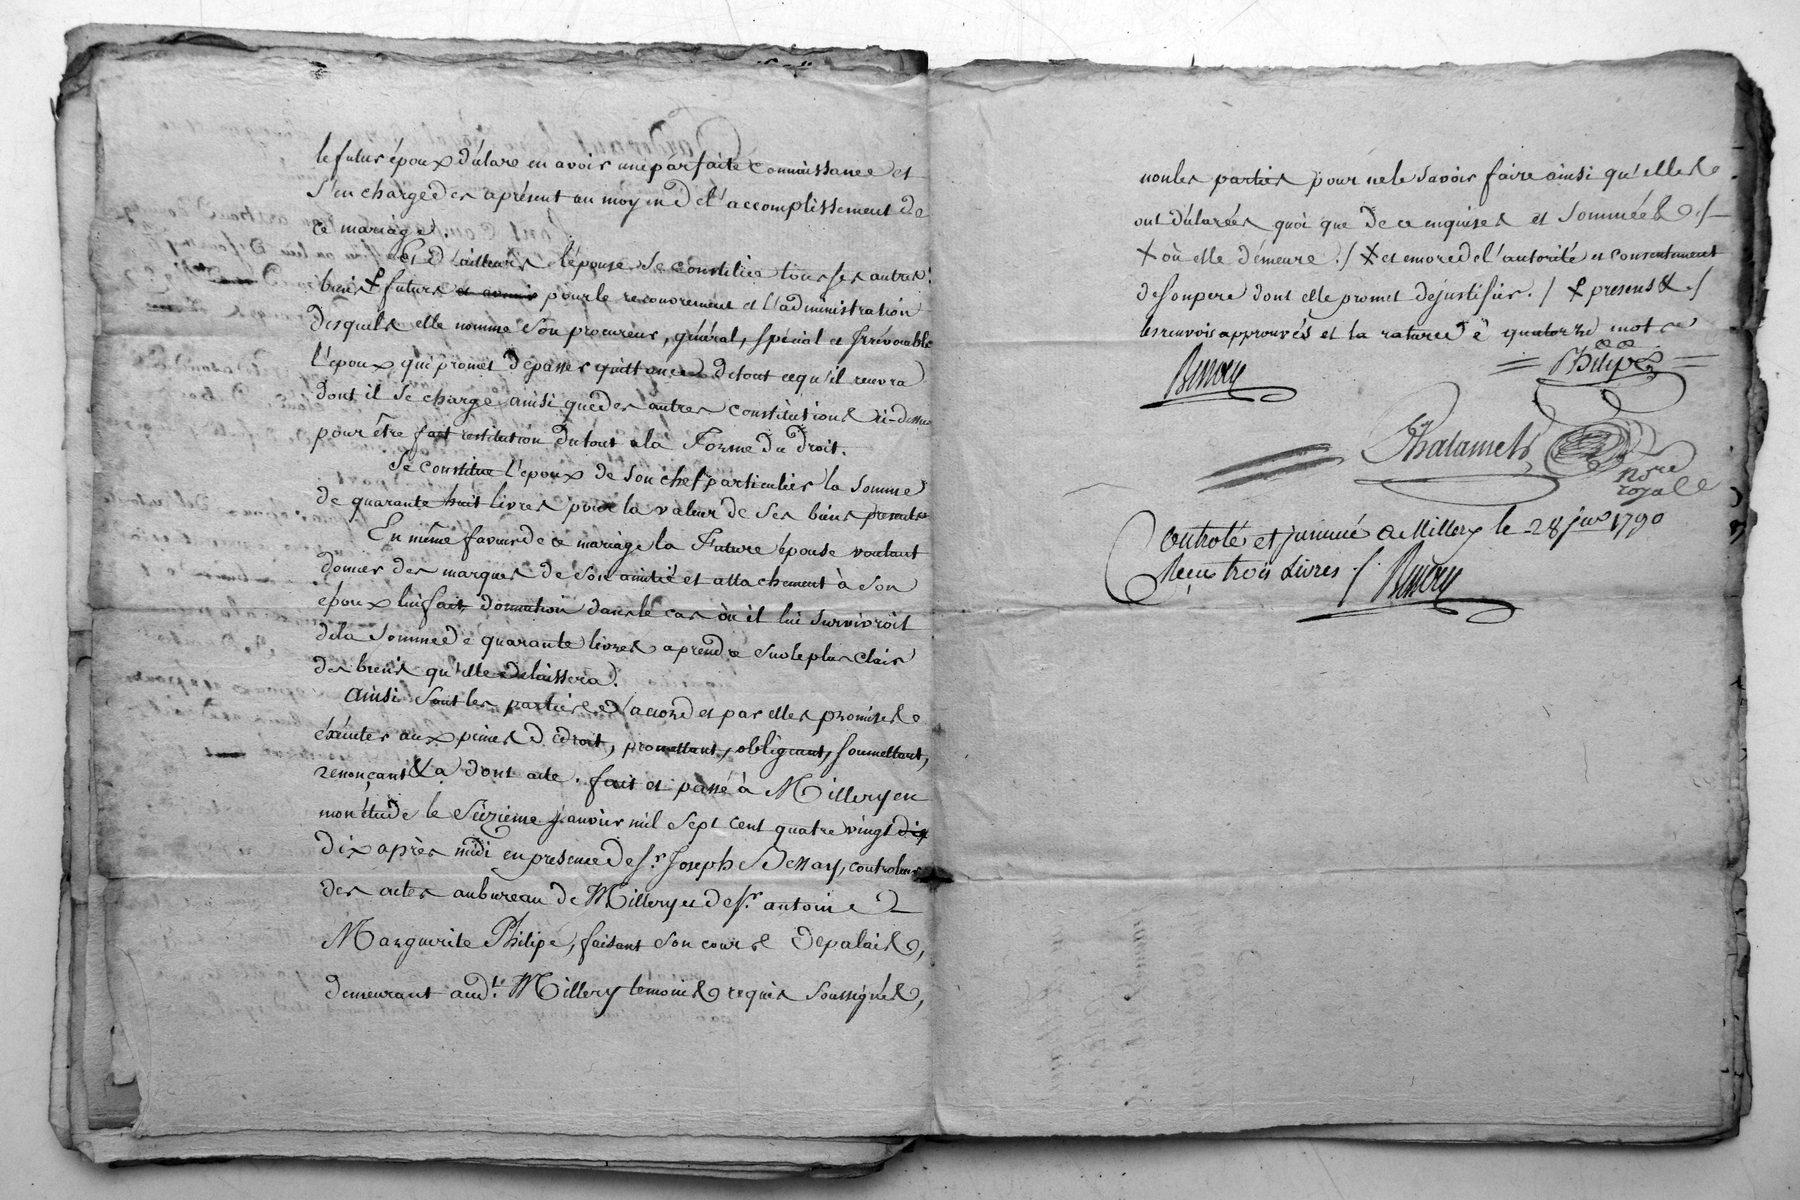 le futur époux déclare en avoir une parfaite connoissance et
s'en charge dès aprésent au moyen de l'accomplissement de
ce mariage.
Et d'ailleurs l'épouse se constitue tous ses autres
biens ⳨ futurs et avenir pour le recouvrement et l'administration
desquels elle nomme son procureur, général, spécial et Irrévocable
l'époux qui promet de passer quittance de tout ce qu'il recevra
dont il se charge ainsi que des autres constitutions ci-dessus
pour être fait restitution du tout a la Forme du droit.
Se constitue l'epoux de son chef particulier la somme
de quarante huit livres pour la valeur de ses biens presents
En même faveur de ce mariage la Future épouse voulant
donner des marques de son amitié et attachement à son
époux lui fait donnation dans le cas où il lui survivroit
de la somme de quarante livres a prendre sur le plus clair
des biens qu'elle delaissera.
Ainsi sont les parties d'accord et par elles promis
éxécuter aux peines de droit, promettant, obligeant, soumettant,
renonçant &a dont acte. fait et passé à Millery en
mon étude le seizieme janvier mil sept cent quatre vingt dix
dix après midi en presence de sr. Joseph Bessay, controleur
des actes au bureau de Millery et de sr. antoine
Marguerite Philipe, faisant son cours de palais,
demeurant aud.t Millery temoins requis soussignés,
non les parties pour ne le savoir faire ainsi qu'elles
ont déclarées quoi que de ce enquises et sommées ./.
X où elle démeure ./ X et encore de l'autorité et consentement
de son pere dont elle promet de justifier. / ⳨ presens & ./
les renvois approuvés et la rature de quatorze mots
Bessay
Philipe
Chatamel
Nore
royale
Controlé et insinué a Millery le 28 jer 1790
Reçu trois Livres ./. Bessay